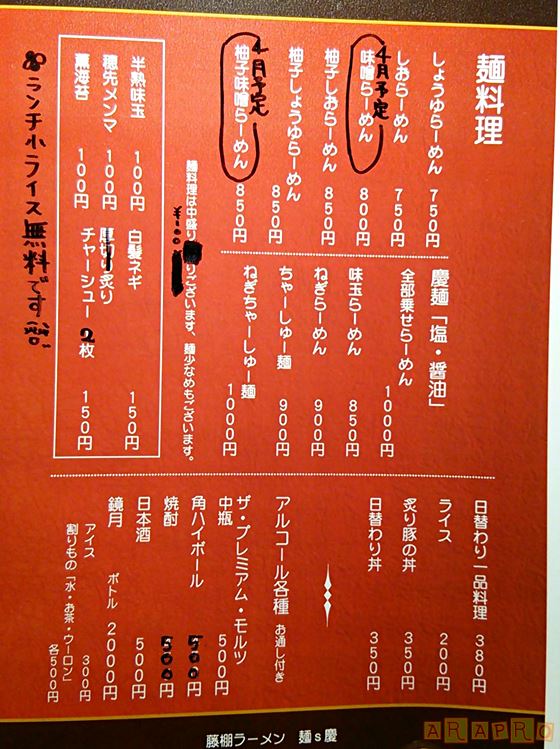 麺料理
しょうゆらーめん 750円
しおらーめん 750円
味噌らーめん 800円
4月予定
柚子しおらーめん 850円
柚子しょうゆらーめん 850円
柚子味噌らーめん 850円
4月予定
慶麺「塩・醤油」
全部乗せらーめん 1000円
味玉らーめん 850円
ねぎらーめん 900円
ちゃーしゅー麺 900円
ねぎちゃーしゅー麺 1000円
麺料理は中盛り りございます、麺少なめもございます。
¥100
半熟味玉 100円
穂先メンマ 100円
薫海苔 100円
白髪ネギ 150円
炙り
チャーシュー 2枚 150円
ランチ小ライス無料です
日替わり一品料理 380円
ライス 200円
炙り豚の丼 350円
日替わり丼 350円
アルコール各種 お通し付き
ザ・プレミアム・モルツ
中瓶 500円
角ハイボール 500円
焼酎 500円
日本酒 500円
鏡月 ボトル 2000円
アイス 300円
割りもの「水・お茶・ウーロン」 各500円
藤棚ラーメン 麺s慶
ARAPRO